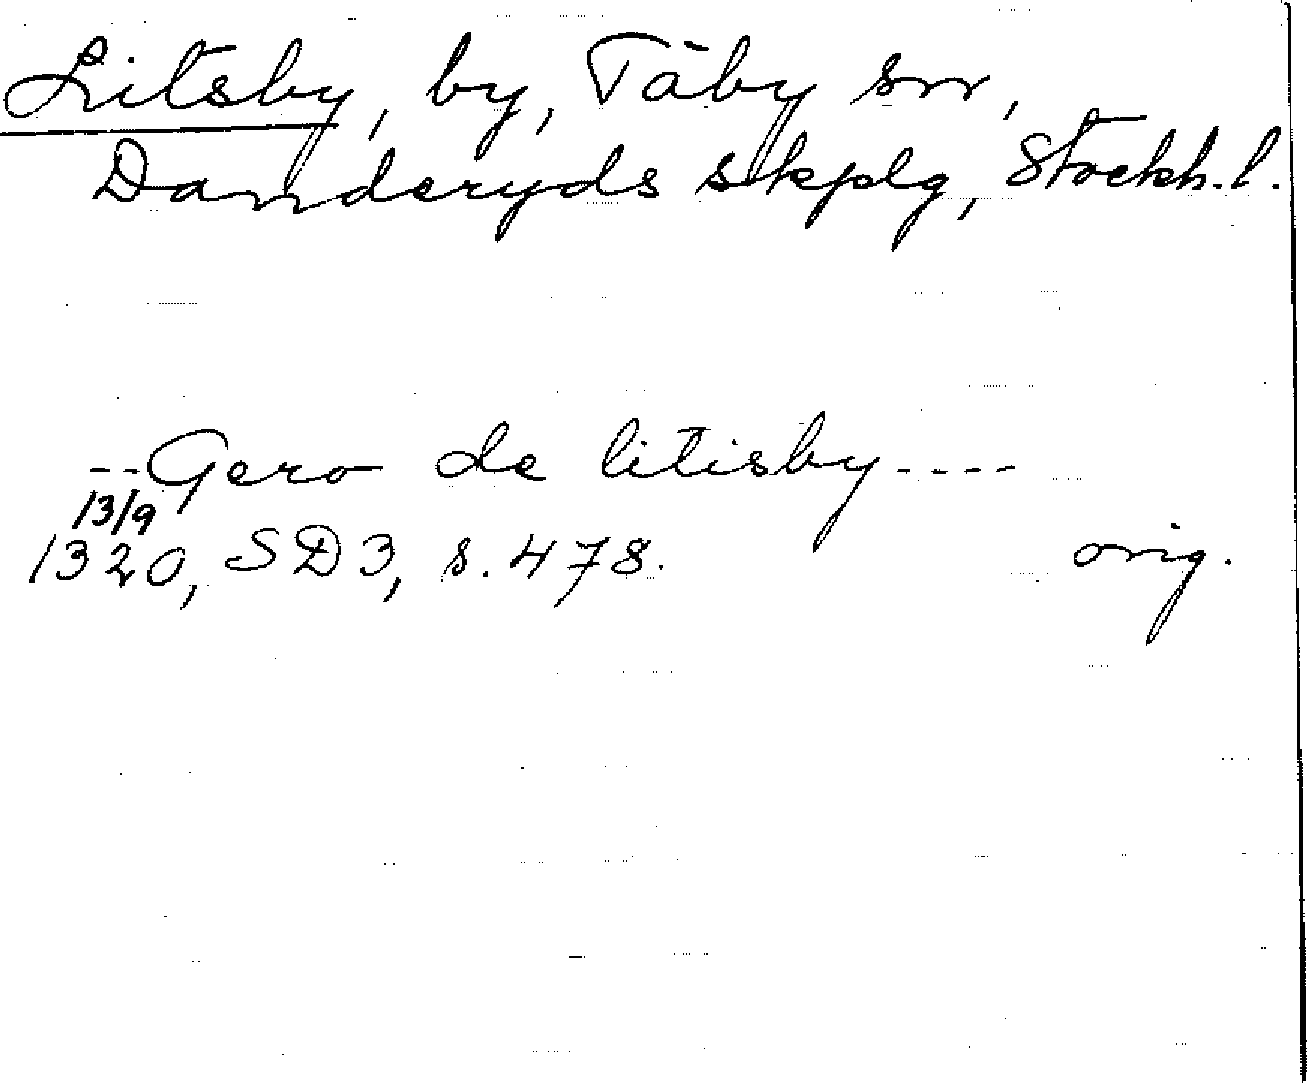 Litsby, by, Täby sn,
Danderyds skplg, Stockh. l.
--Gero de litisby----
13/9
1320, SD3, s. 478. orig.